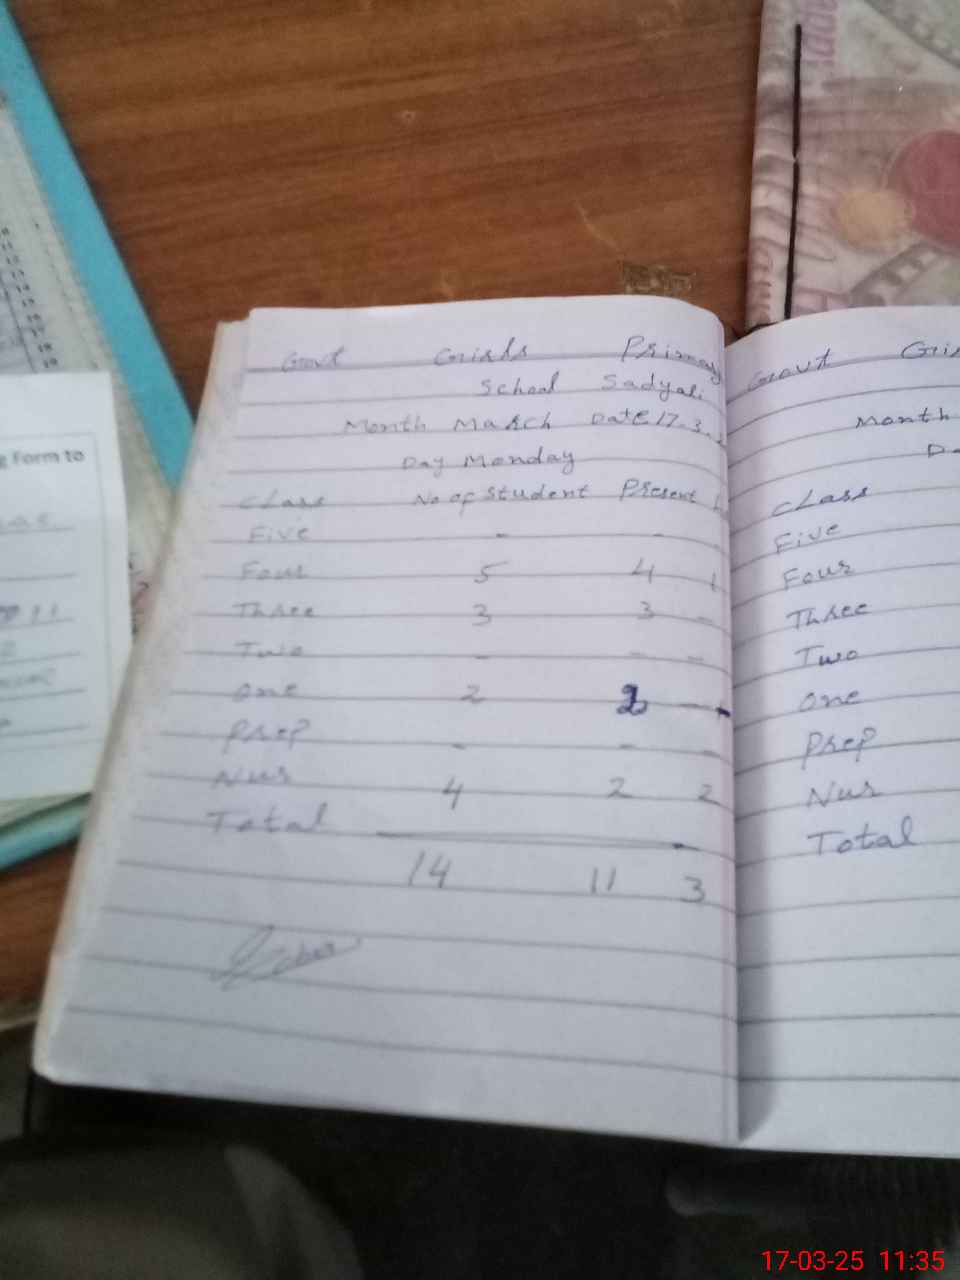 Govt Girls Primary
School Sadyali
Month March Date 17.3.
Day Monday
Class No of Student Present
Five - - -
Four 5 4 1
Three 3 3 -
Two - - -
One 2 2 -
Prep - - -
Nur 4 2 2
Total
14 11 3
Govt Gir
Month
Da
Class
Five
Four
Three
Two
One
Prep
Nur
Total
g Form to
17-03-25 11:35